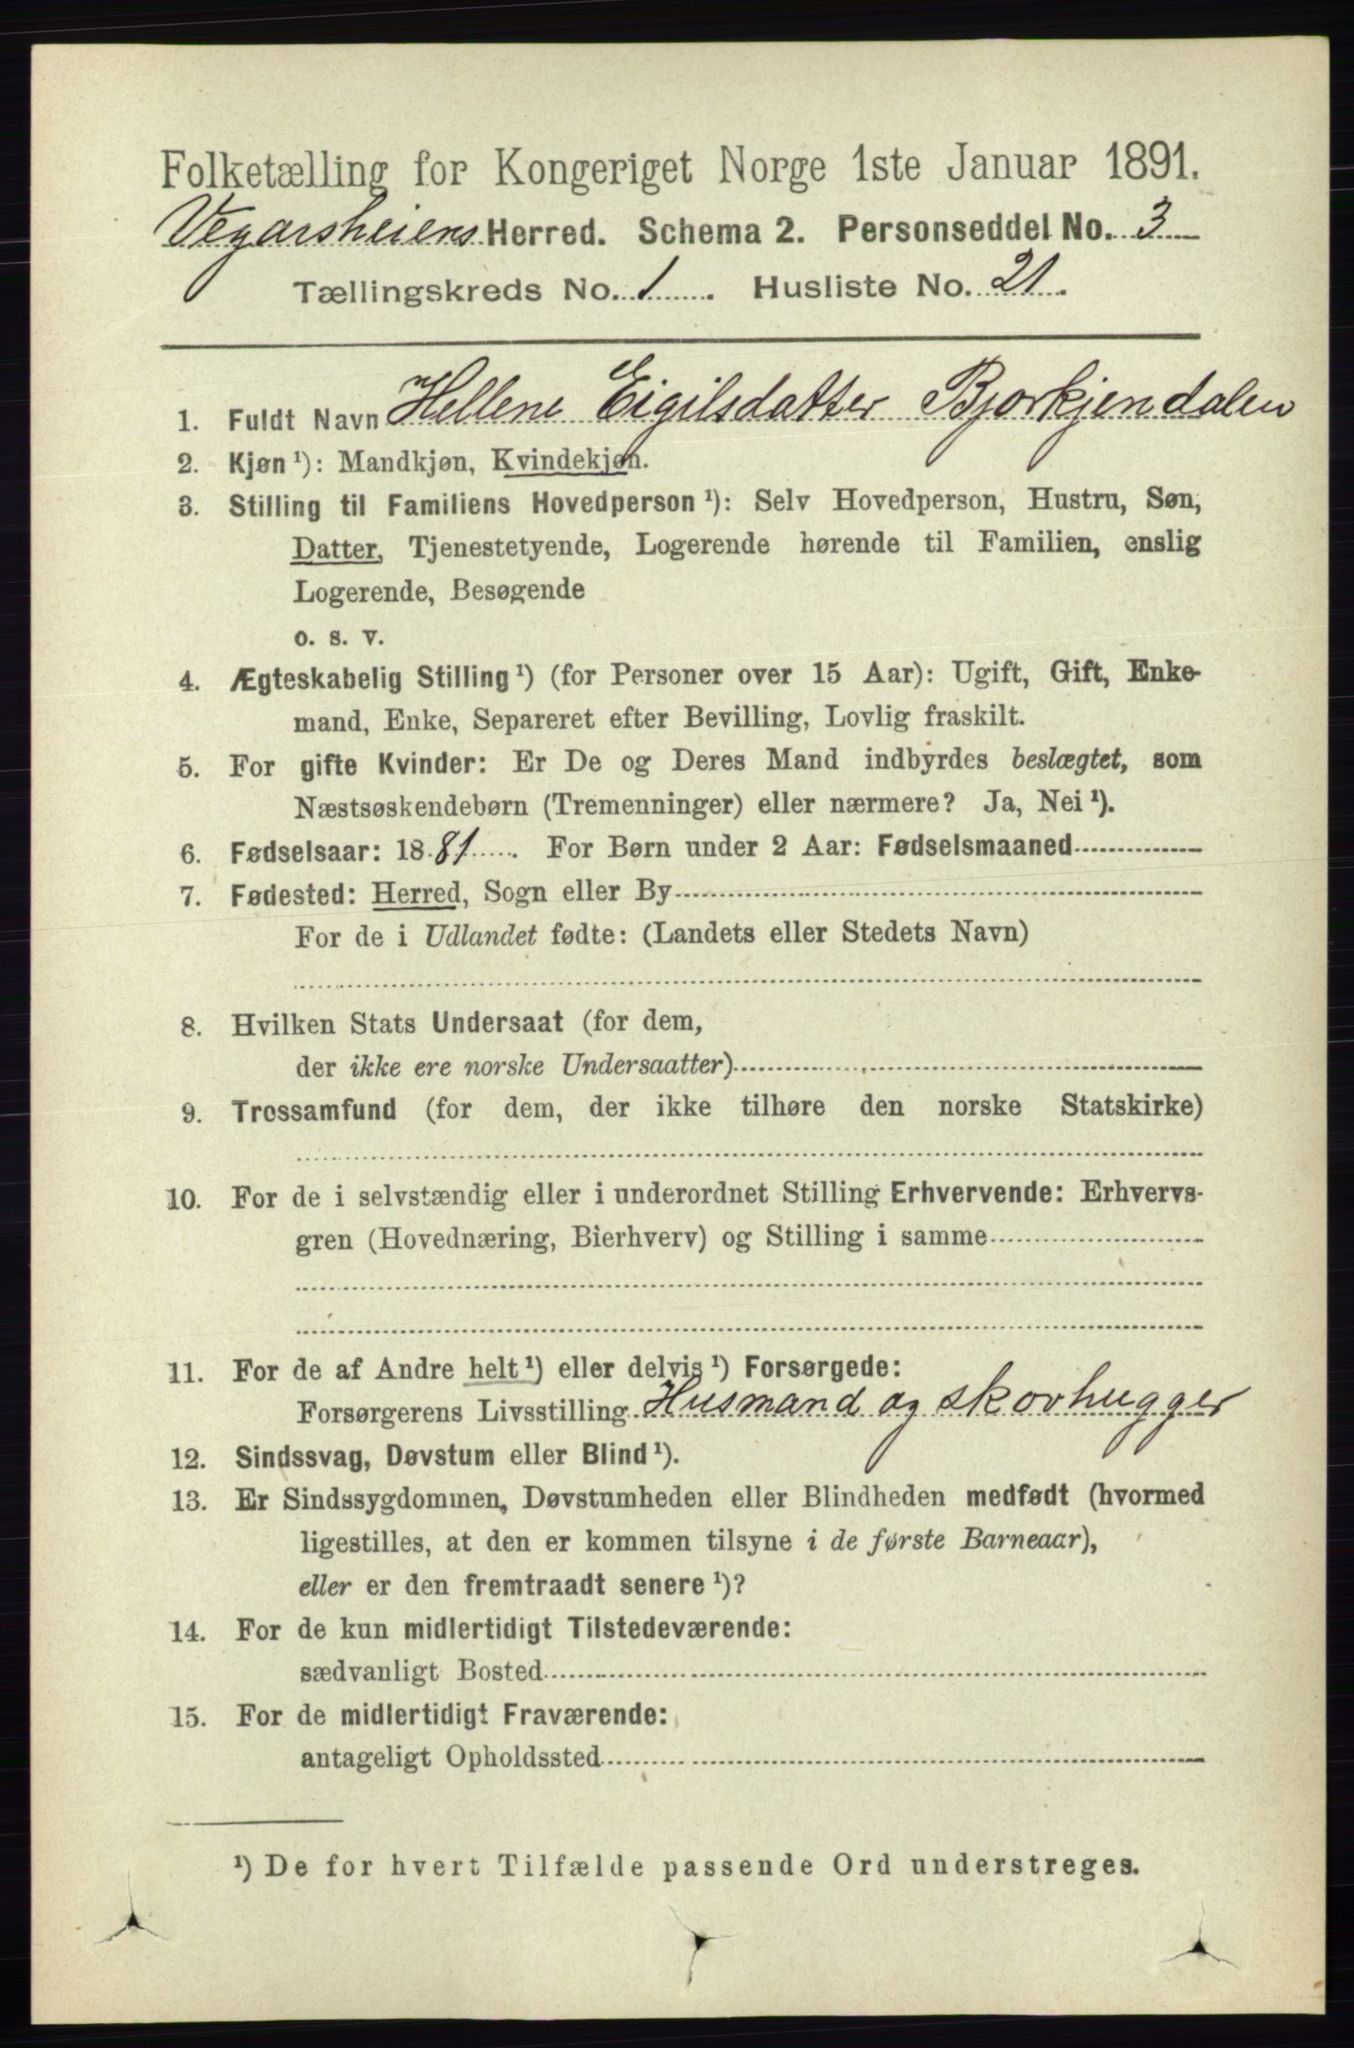 Folketælling for Kongeriget Norge 1ste Januar 1891.
Vegarsheiens Herred. Schema 2. Personseddel No. 3
Tællingskreds No. 1. Husliste No. 21.
1. Fuldt Navn Hellene Eigilsdatter Bjorkjendalen
2. Kjøn¹): Mandkjøn, Kvindekjøn.
3. Stilling til Familiens Hovedperson¹): Selv Hovedperson, Hustru, Søn,
Datter, Tjenestetyende, Logerende hørende til Familien, enslig
Logerende, Besøgende
o. s. v.
4. Ægteskabelig Stilling¹) (for Personer over 15 Aar): Ugift, Gift, Enke-
mand, Enke, Separeret efter Bevilling, Lovlig fraskilt.
5. For gifte Kvinder: Er De og Deres Mand indbyrdes beslægtet, som
Næstsøskendebørn (Tremenninger) eller nærmere? Ja, Nei¹).
6. Fødselsaar: 1881. For Børn under 2 Aar: Fødselsmaaned
7. Fødested: Herred, Sogn eller By
For de i Udlandet fødte: (Landets eller Stedets Navn)
8. Hvilken Stats Undersaat (for dem,
der ikke ere norske Undersaatter)
9. Trossamfund (for dem, der ikke tilhøre den norske Statskirke)
10. For de i selvstændig eller i underordnet Stilling Erhvervende: Erhvervs-
gren (Hovednæring, Bierhverv) og Stilling i samme
11. For de af Andre helt¹) eller delvis¹) Forsørgede:
Forsørgerens Livsstilling Husmand og skovhugger
12. Sindssvag, Døvstum eller Blind¹).
13. Er Sindssygdommen, Døvstumheden eller Blindheden medfødt (hvormed
ligestilles, at den er kommen tilsyne i de første Barneaar),
eller er den fremtraadt senere¹)?
14. For de kun midlertidigt Tilstedeværende:
sædvanligt Bosted
15. For de midlertidigt Fraværende:
antageligt Opholdssted
¹) De for hvert Tilfælde passende Ord understreges.